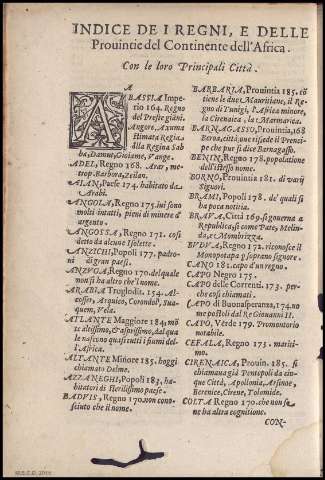 INDICE DE I REGNI, E DELLE
Prouintie del Continente dell'Africa.
Con le loro Principali Città.
A
ABASSIA Impe-
rio 164. Regno
del Preste giãni.
Angote, Axuma
Himata Regia
della Regina Sab-
ba, Damut, Goiame, Vange.
ADEL, Regno 168. Arar, me-
trop. Barbora, Zeilan.
AIAN, Paese 174. habitato da
Arabi.
ANGOLA, Regno 175. iui sono
molti intatti, pieni di minere d'
argento.
ANGOSSA, Regno 171. così
detto da alcune Isolette.
ANZICHI, Popoli 177. padro-
ni di gran paese.
ANZVGA, Regno 170. del quale
non si ha altro che'l nome.
ARABIA Trogloditi. 154. Al-
cosser, Arquico, Corondol, Sua-
quem, Vela.
ATLANTE Maggiore 184. mõ
te altissimo, & asprissimo, dal qua
le nascono quasi tutti i fiumi del-
l'Africa.
ALTANTE Minore 185. hoggi
chiamato Delme.
AZZANEGHI, Popoli 183. ha-
bitatori di sterilissimo paese.
BADFIS, Regno 170. non cono-
sciuto che il nome.
BARBARIA, Prouintia 185. cõ
tiene le due Mauritiane, il Re-
gno di Tunigi, l'Africa minore,
la Cirenaica, la Marmarica.
BARNAGASSO, Prouintia, 168
Ecroa, città, oue risiede il Prenci-
pe che pur si dice Bernagasso.
BENIN, Regno 178. popolatione
dell'istesso nome.
BORNO, Prouintia 181. di varij
Signori.
BRAMI, Popoli 178. de' quali si
ha poca notitia.
BRAVA, Città 169. si gouerna a
Republica, si come Pate, Melin-
da, e Mombrizza.
BVDVA, Regno 171. riconosce il
Monopotapa p soprano signore.
CANO 181. capo d'un regno.
CAPO Negro 175.
CAPO delle Correnti. 173. per-
che così chiamati.
CAPO di Buonasperanza, 174. no
me postoli dal Re Giouanni II.
CAPO, Verde 179. Promontorio
notabile.
CEFALA, Regno 173. mariti-
mo.
CIRENAICA, Prouin. 185. si
chiamaua già Pentapoli da cin-
que Città, Apollonia, Arsinoe,
Berenice, Cirene, Tolomide.
COLTA Regno 170. che non se
ne ha altra cognitione.
CON-